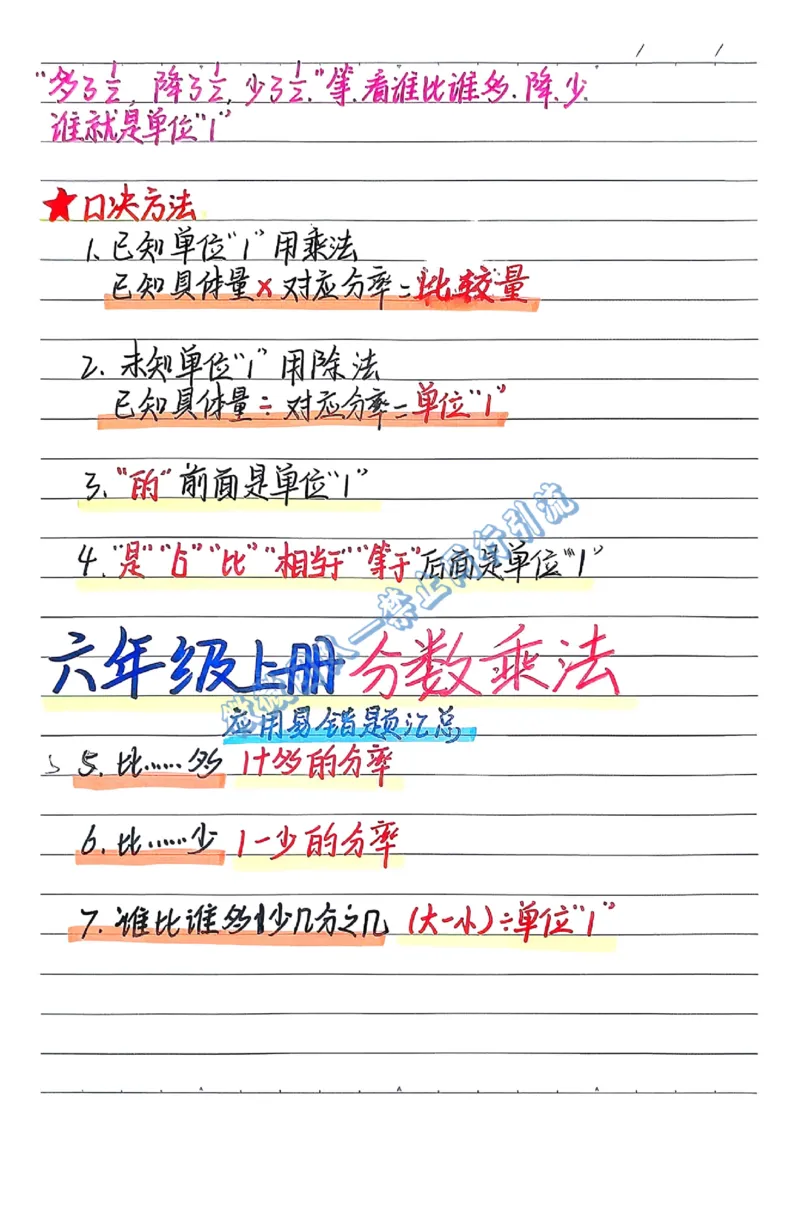 “多了1/2, 降了1/2, 少了1/2.”等.看谁比谁多.降.少.
谁就是单位“1”
★口决方法
1. 已知单位“1”用乘法
已知具体量×对应分率=比较量
2. 未知单位“1”用除法
已知具体量÷对应分率=单位“1”
3. “的”前面是单位“1”
4. “是”“占”“比”“相当于”“等于”后面是单位“1”
六年级上册分数乘法
应用易错题汇总
5. 比……多 1+多的分率
6. 比……少 1-少的分率
7. 谁比谁多/少几分之几 (大-小)÷单位“1”